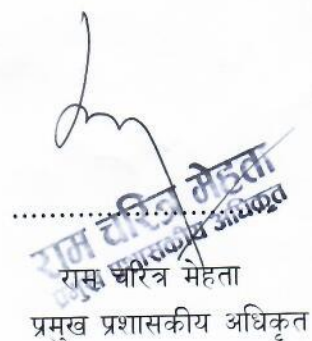 राम चरित्र मेहता
प्रमुख प्रशासकीय अधिकृत
....................................
राम चरित्र मेहता
प्रमुख प्रशासकीय अधिकृत